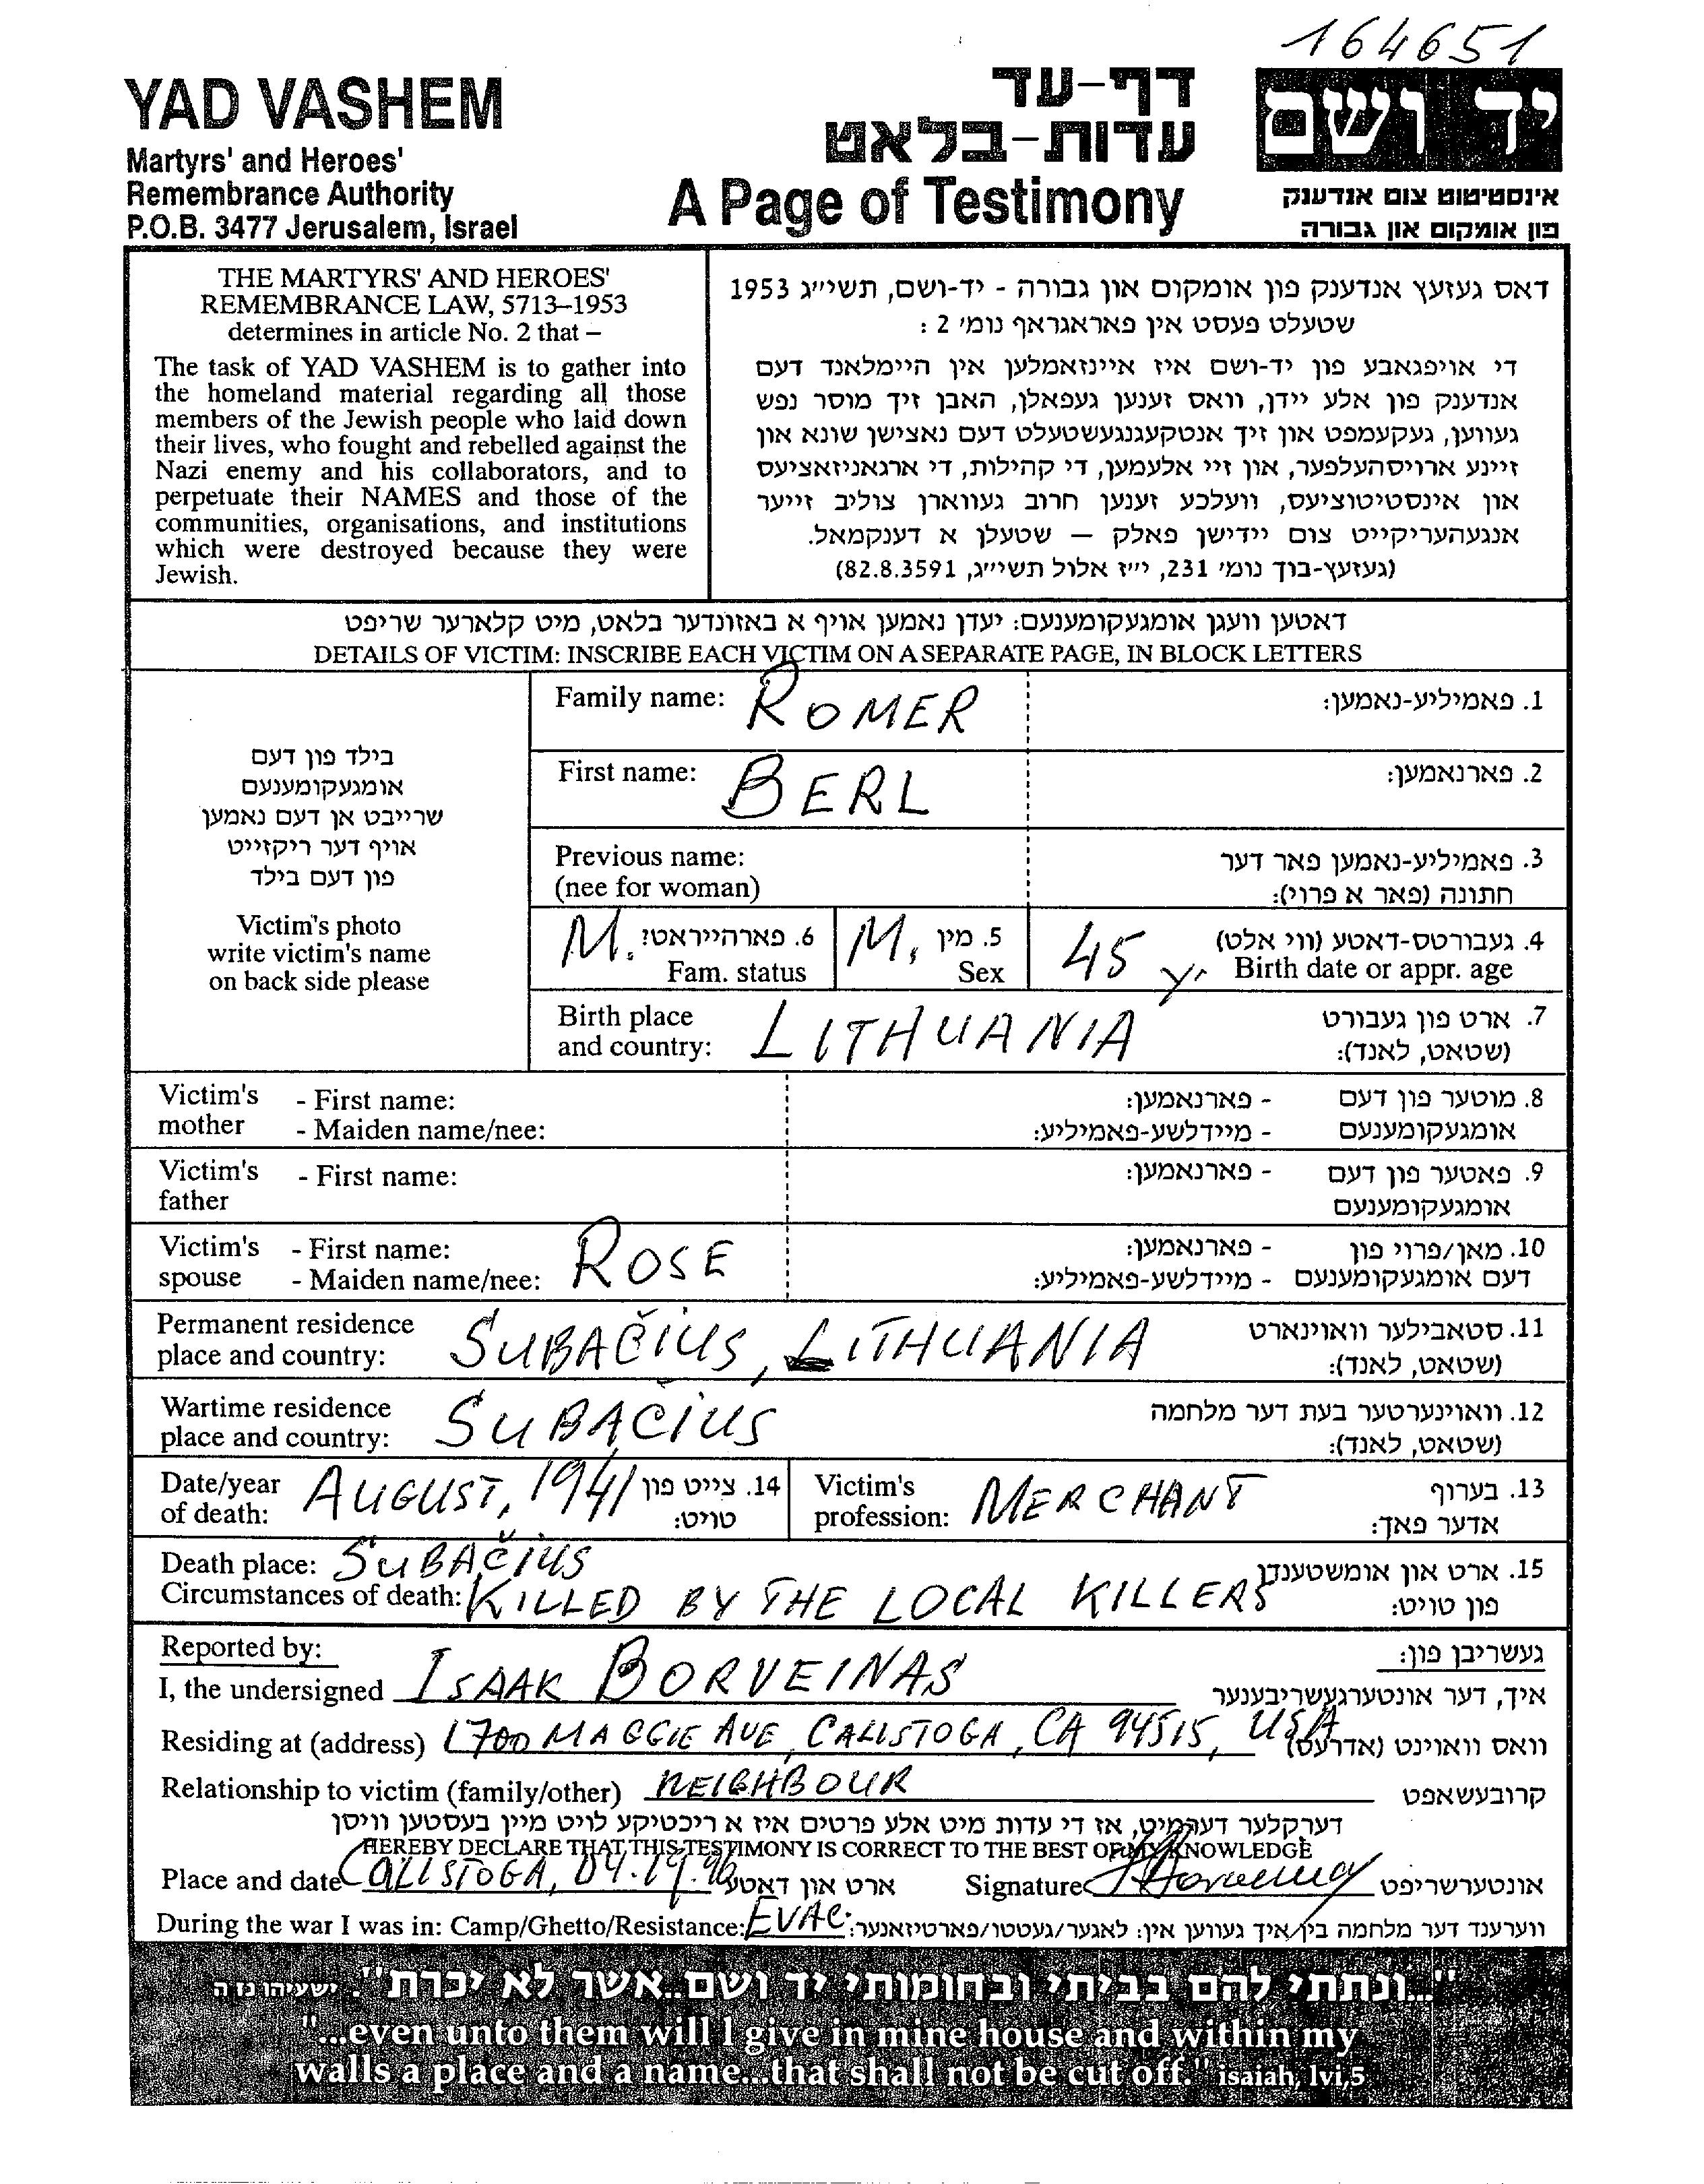 164651
YAD VASHEM
Martyrs' and Heroes'
Remembrance Authority
P.O.B. 3477 Jerusalem, Israel
דף-עד
עדות-בלאט
A Page of Testimony
יד ושם
אינסטיטוט צום אנדענק
פון אומקום און גבורה
THE MARTYRS' AND HEROES'
REMEMBRANCE LAW, 5713–1953
determines in article No. 2 that –
The task of YAD VASHEM is to gather into
the homeland material regarding all those
members of the Jewish people who laid down
their lives, who fought and rebelled against the
Nazi enemy and his collaborators, and to
perpetuate their NAMES and those of the
communities, organisations, and institutions
which were destroyed because they were
Jewish.
דאס געזעץ אנדענק פון אומקום און גבורה - יד-ושם, תשי״ג 1953
שטעלט פעסט אין פאראגראף נומ׳ 2 :
די אויפגאבע פון יד-ושם איז איינזאמלען אין היימלאנד דעם
אנדענק פון אלע יידן, וואס זענען געפאלן, האבן זיך מוסר נפש
געווען, געקעמפט און זיך אנטקעגנגעשטעלט דעם נאצישן שונא און
זיינע ארויסהעלפער, און זיי אלעמען, די קהילות, די ארגאניזאציעס
און אינסטיטוציעס, וועלכע זענען חרוב געווארן צוליב זייער
אנגעהעריקייט צום יידישן פאלק — שטעלן א דענקמאל.
(געזעץ-בוך נומ׳ 231, י״ז אלול תשי״ג, 82.8.3591)
דאטען וועגן אומגעקומענעם: יעדן נאמען אויף א באזונדער בלאט, מיט קלארער שריפט
DETAILS OF VICTIM: INSCRIBE EACH VICTIM ON A SEPARATE PAGE, IN BLOCK LETTERS
בילד פון דעם
אומגעקומענעם
שרייבט אן דעם נאמען
אויף דער ריקזייט
פון דעם בילד
Victim's photo
write victim's name
on back side please
Family name: ROMER 1. פאמיליע-נאמען:
First name: BERL 2. פארנאמען:
Previous name: 3. פאמיליע-נאמען פאר דער
(nee for woman) חתונה (פאר א פרוי):
M. 6. פארהייראט? M. 5. מין 45 yr 4. געבורטס-דאטע (ווי אלט)
Fam. status Sex Birth date or appr. age
Birth place LITHUANIA 7. ארט פון געבורט
and country: (שטאט, לאנד):
Victim's - First name: - פארנאמען: 8. מוטער פון דעם
mother - Maiden name/nee: - מיידלשע-פאמיליע: אומגעקומענעם
Victim's - First name: - פארנאמען: 9. פאטער פון דעם
father אומגעקומענעם
Victim's - First name: ROSE - פארנאמען: 10. מאן/פרוי פון
spouse - Maiden name/nee: - מיידלשע-פאמיליע: דעם אומגעקומענעם
Permanent residence SUBAČIUS, LITHUANIA 11. סטאבילער וואוינארט
place and country: (שטאט, לאנד):
Wartime residence SUBAČIUS 12. וואוינערטער בעת דער מלחמה
place and country: (שטאט, לאנד):
Date/year AUGUST, 1941 14. צייט פון Victim's MERCHANT 13. בערוף
of death: טויט: profession: אדער פאך:
Death place: SUBAČIUS 15. ארט און אומשטענדן
Circumstances of death: KILLED BY THE LOCAL KILLERS פון טויט:
Reported by: געשריבן פון:
I, the undersigned ISAAK BORVEINAS איך, דער אונטערגעשריבענער
Residing at (address) 1700 MAGGIE AVE, CALISTOGA, CA 94515, USA וואס וואוינט (אדרעס)
Relationship to victim (family/other) NEIGHBOUR קרובעשאפט
דערקלער דערמיט, אז די עדות מיט אלע פרטים איז א ריכטיקע לויט מיין בעסטען וויסן
HEREBY DECLARE THAT THIS TESTIMONY IS CORRECT TO THE BEST OF MY KNOWLEDGE
Place and date CALISTOGA, 04.19.96 ארט און דאטע Signature אונטערשריפט
During the war I was in: Camp/Ghetto/Resistance: EVAC. ווערענד דער מלחמה בין איך געווען אין: לאגער/געטטו/פארטיזאנער:
"...ונתתי להם בביתי ובחומותי יד ושם..אשר לא יכרת". ישעיהו נו ה
"...even unto them will I give in mine house and within my
walls a place and a name...that shall not be cut off." isaiah, lvi,5